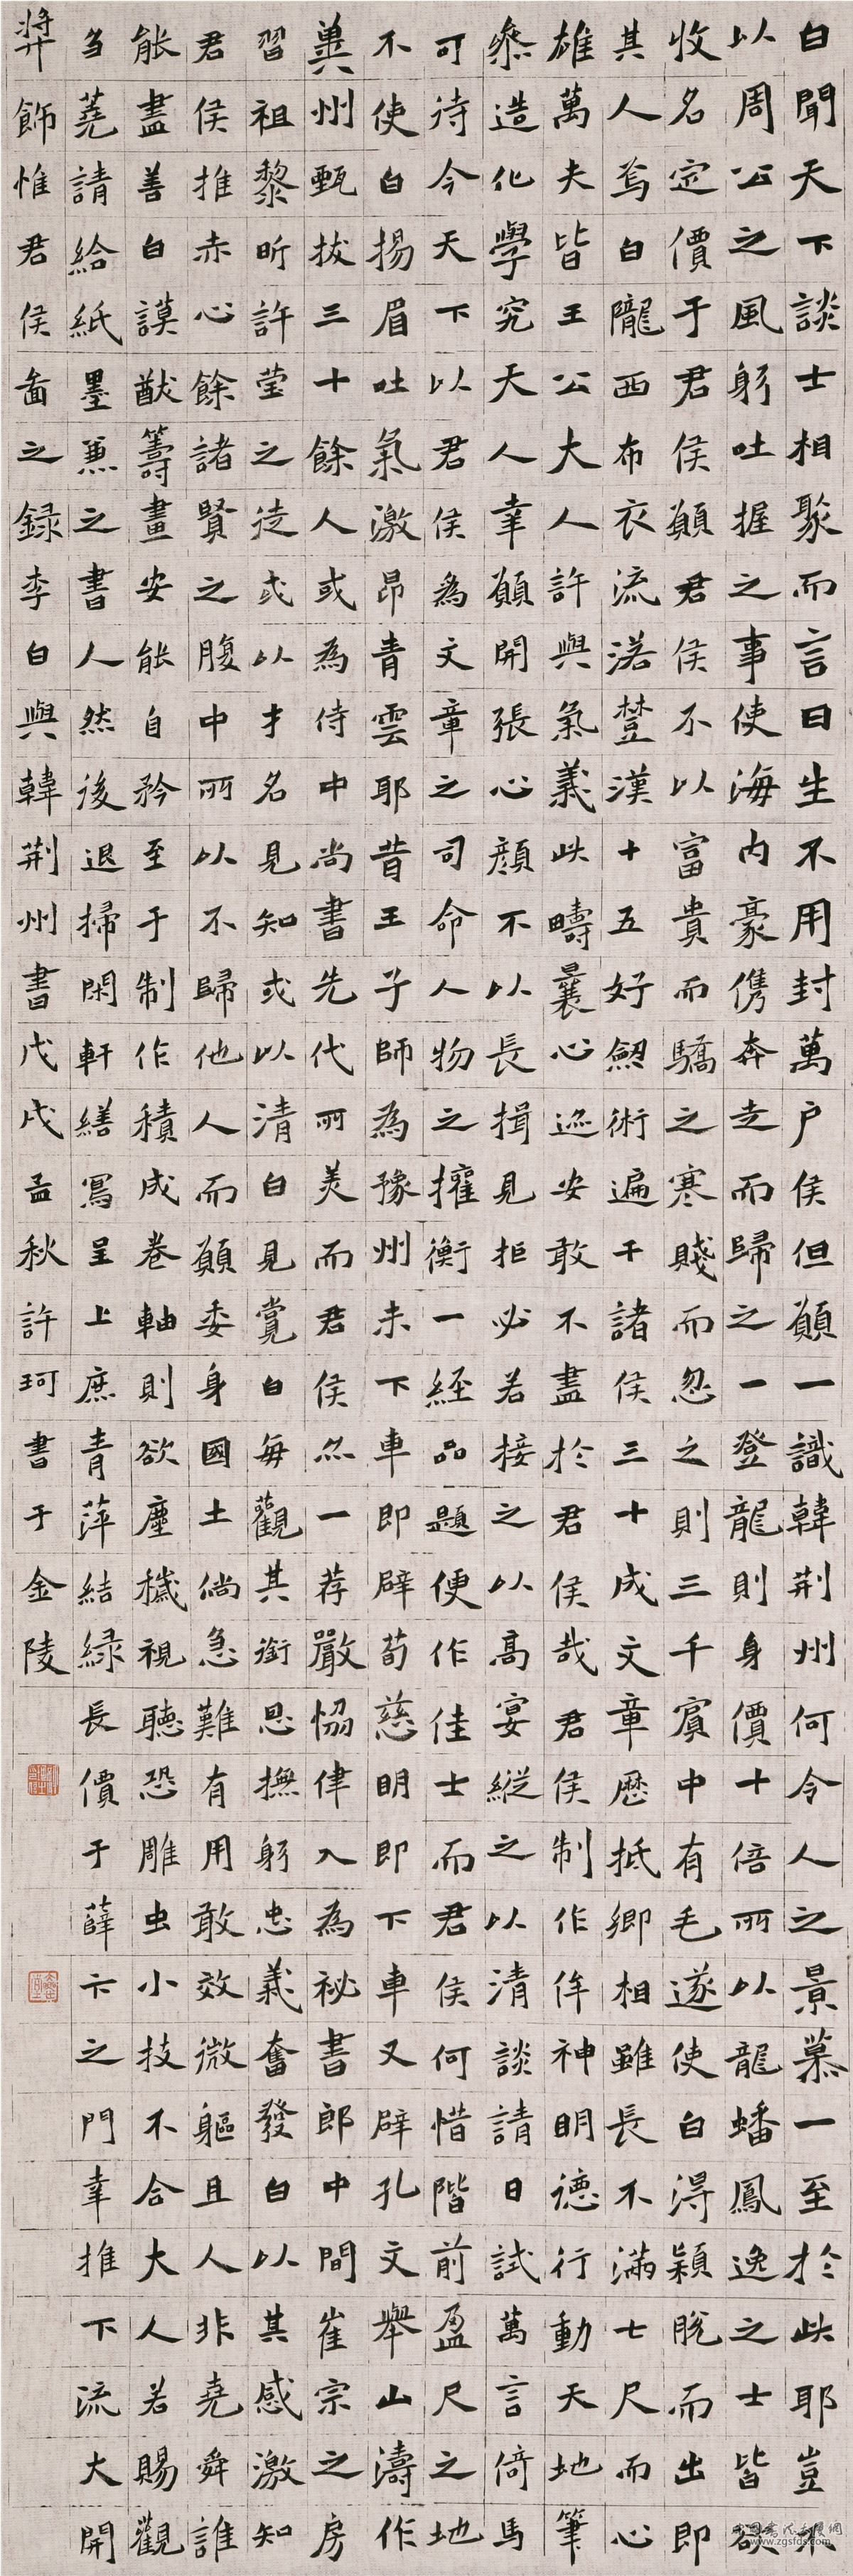 白聞天下談士相聚而言曰生不用封萬户侯但願一識韓荆州何令人之景慕一至於此耶豈不
以周公之風躬吐握之事使海内豪儁奔走而歸之一登龍則身價十倍所以龍蟠鳳逸之士皆欲
收名定價于君侯願君侯不以富貴而驕之寒賤而忽之則三千賓中有毛遂使白得穎脱而出即
其人焉白隴西布衣流落楚漢十五好劍術遍干諸侯三十成文章歷抵卿相雖長不滿七尺而心
雄萬夫皆王公大人許與氣義此疇曩心迹安敢不盡於君侯哉君侯制作侔神明德行動天地筆
叅造化學究天人幸願開張心顔不以長揖見拒必若接之以高宴縱之以清談請日試萬言倚馬
可待今天下以君侯為文章之司命人物之權衡一經品題便作佳士而君侯何惜階前盈尺之地
不使白揚眉吐氣激昂青雲耶昔王子師為豫州未下車即辟荀慈明即下車又辟孔文舉山濤作
冀州甄拔三十餘人或為侍中尚書先代所美而君侯亦一荐嚴協律入為祕書郎中間崔宗之房
習祖黎昕許莹之徒或以才名見知或以清白見賞白每觀其銜恩撫躬忠義奮發白以其感激知
君侯推赤心餘諸賢之腹中所以不歸他人而願委身國土倘急難有用敢效微軀且人非堯舜誰
能盡善白謨猷籌畫安能自矜至于制作積成卷軸則欲塵穢視聽恐雕虫小技不合大人若賜觀
芻蕘請給紙墨兼之書人然後退掃閑軒繕寫呈上庶青萍結緑長價于薛卞之門幸推下流大開
獎飾惟君侯圖之録李白與韓荆州書戊戌孟秋許珂書于金陵
www.zgsfds.com